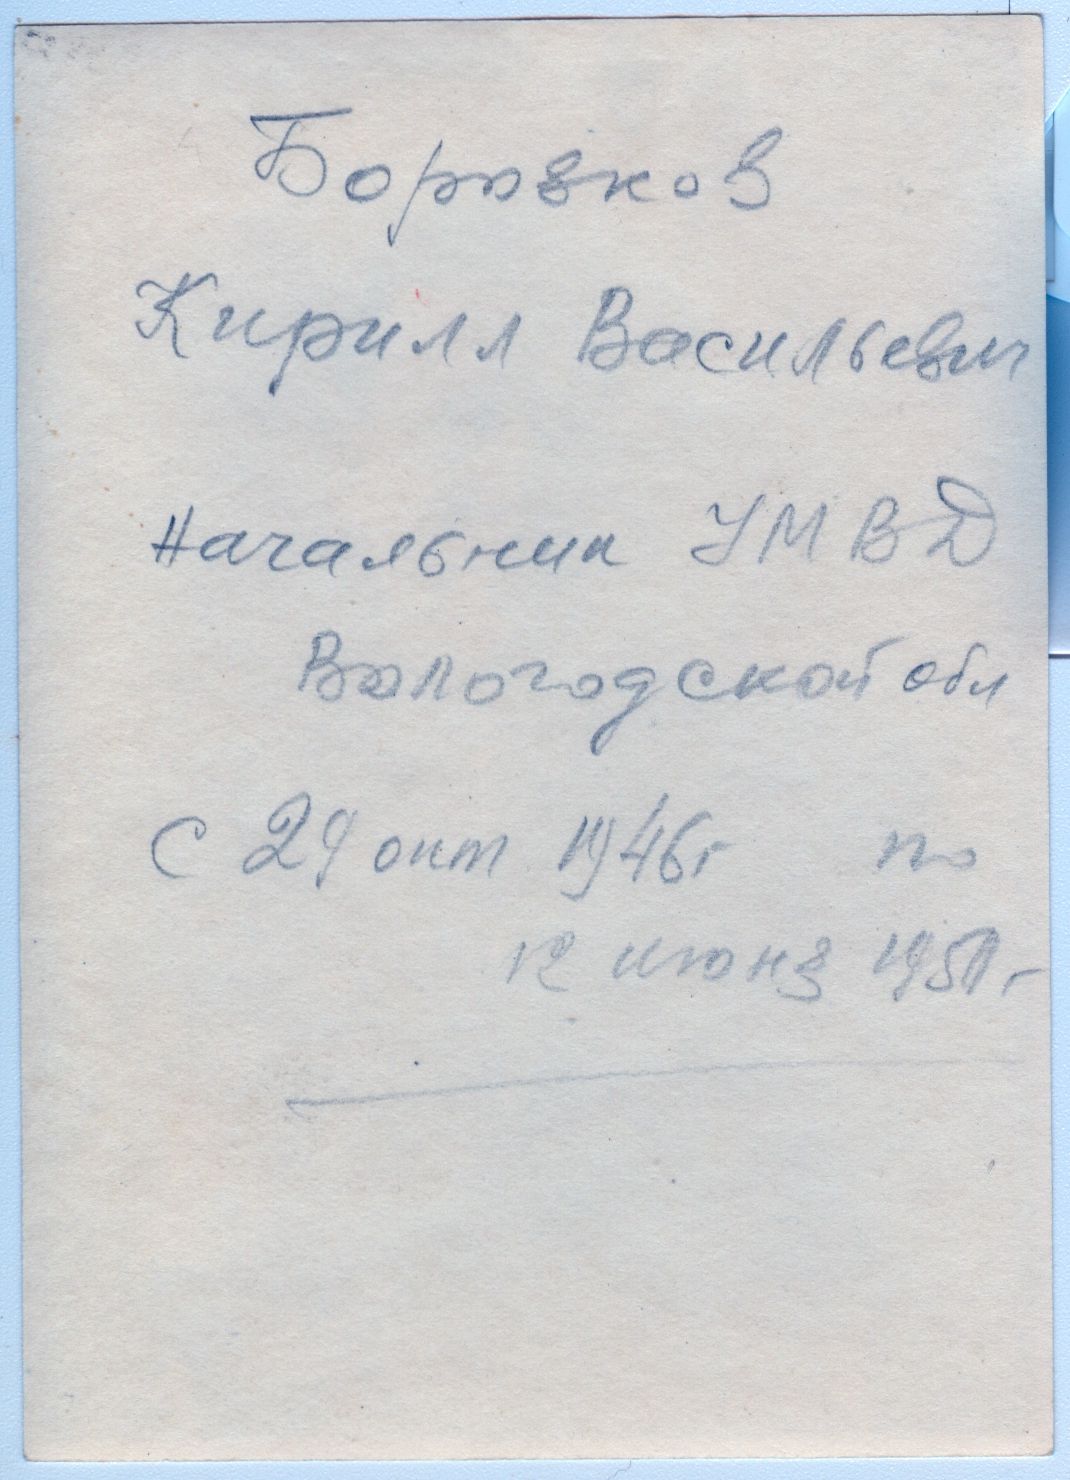 Боровков
Кирилл Васильевич
Начальник УМВД
Вологодской обл
с 29 окт 1946г по
12 июня 1951г